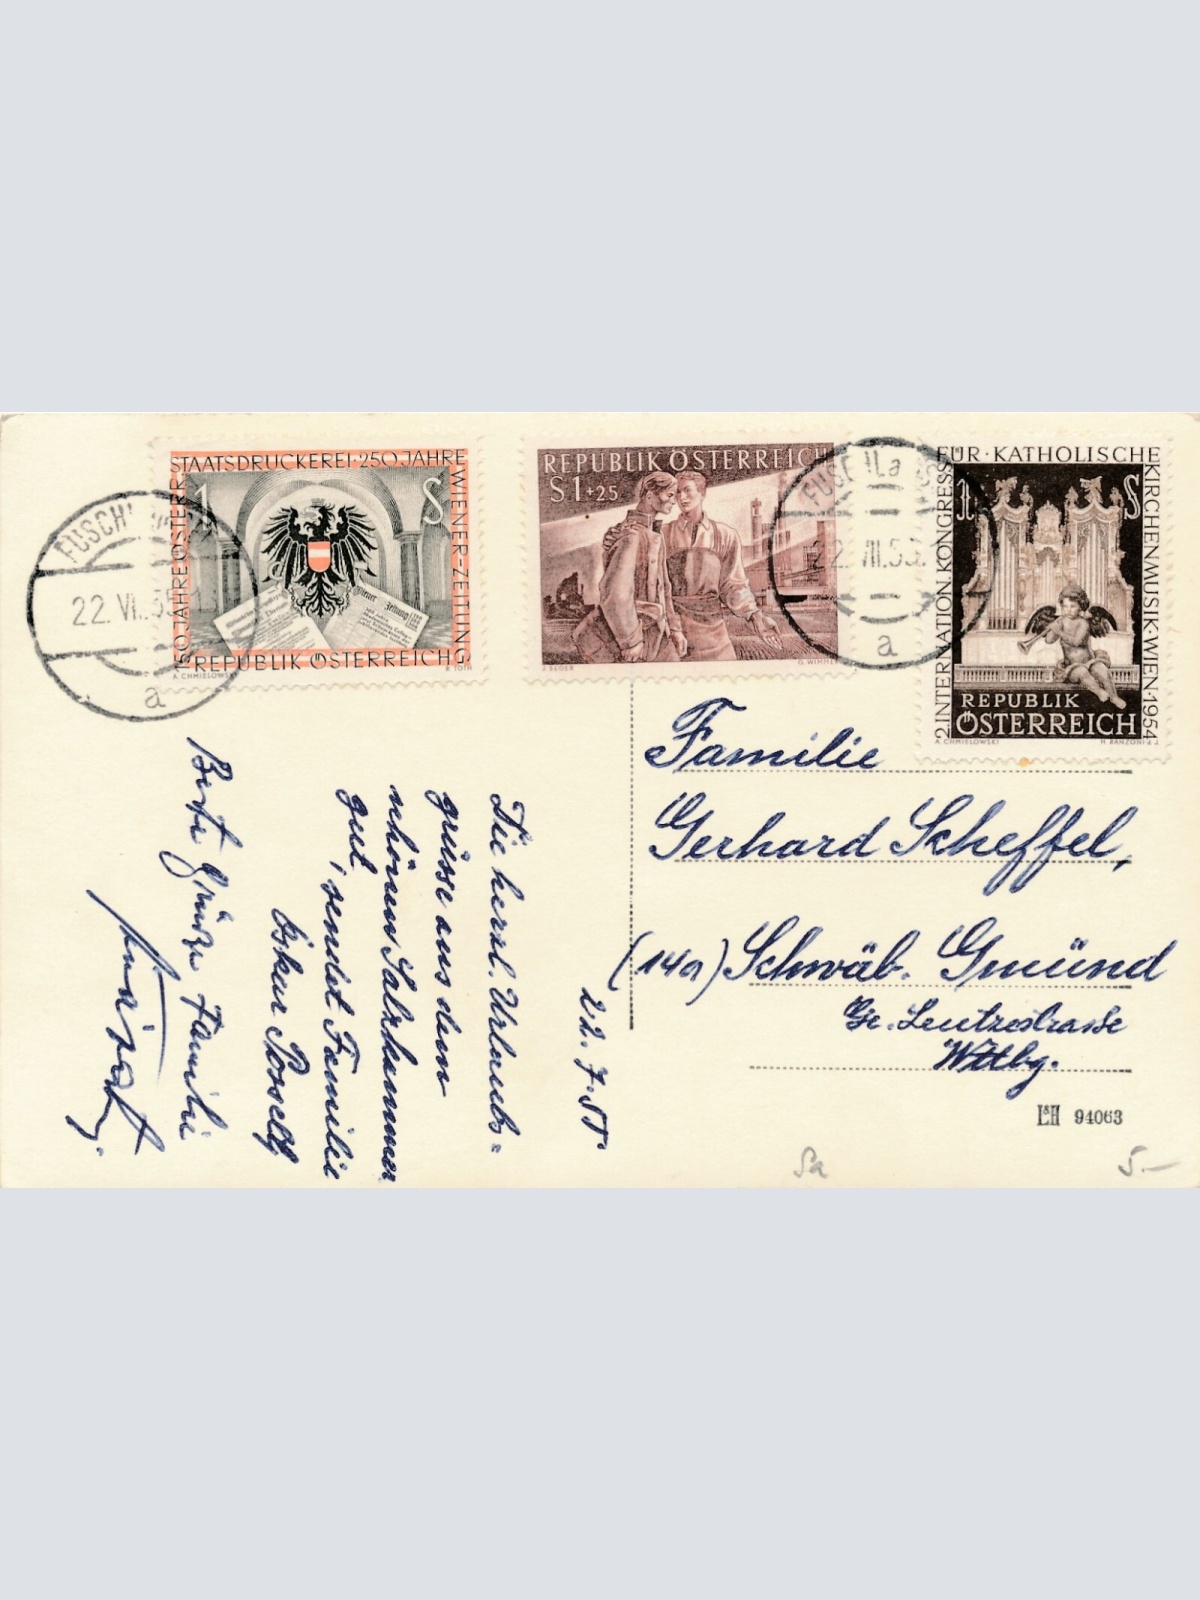 STAATSDRUCKEREI·250 JAHRE
WIENER-ZEITUNG
150 JAHRE ÖSTERR.
1 S
REPUBLIK ÖSTERREICH
A. CHMIELOWSKI
R. TOTH
22. VII. 55
a
REPUBLIK ÖSTERREICH
S1+25
J. SEGER
G. WIMMER
22. VII. 55
a
2. INTERNATION. KONGRESS
FÜR · KATHOLISCHE
KIRCHENMUSIK · WIEN · 1954
1 S
REPUBLIK
ÖSTERREICH
A. CHMIELOWSKI
H. RANZONI D. J.
22. 7. 55
Die herzl. Urlaubs=
grüsse aus dem
schönen Salzkammer
gut, sendet Familie
Oskar Posselt
Beste Grüße Familie
Familie
Gerhard Scheffel,
(14a) Schwäb. Gmünd
Gr. Leutzestrasse
Wttbg.
L&H 94063
Sa
5.–